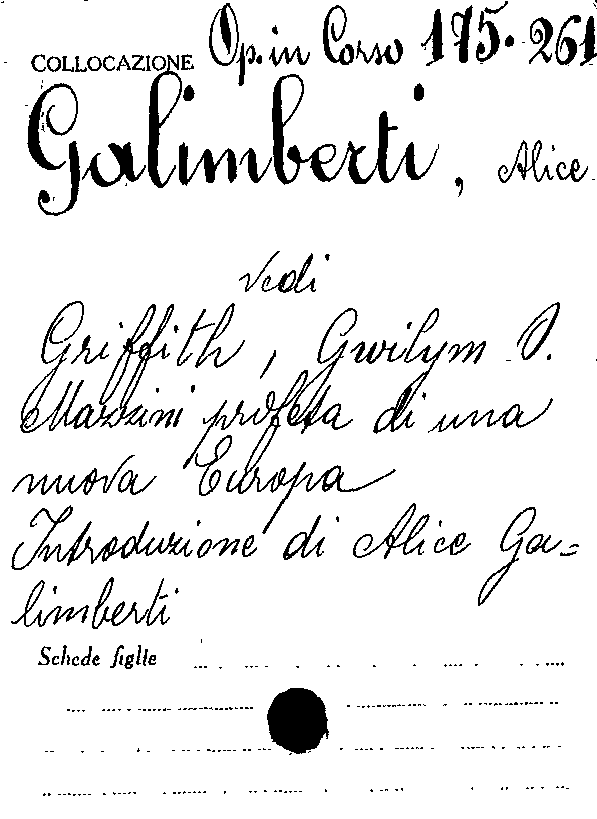 COLLOCAZIONE Op. in Corso 175. 261
Galimberti, Alice
vedi
Griffith, Gwilym O.
Mazzini profeta di una
nuova Europa
Introduzione di Alice Ga=
limberti
Schede figlie